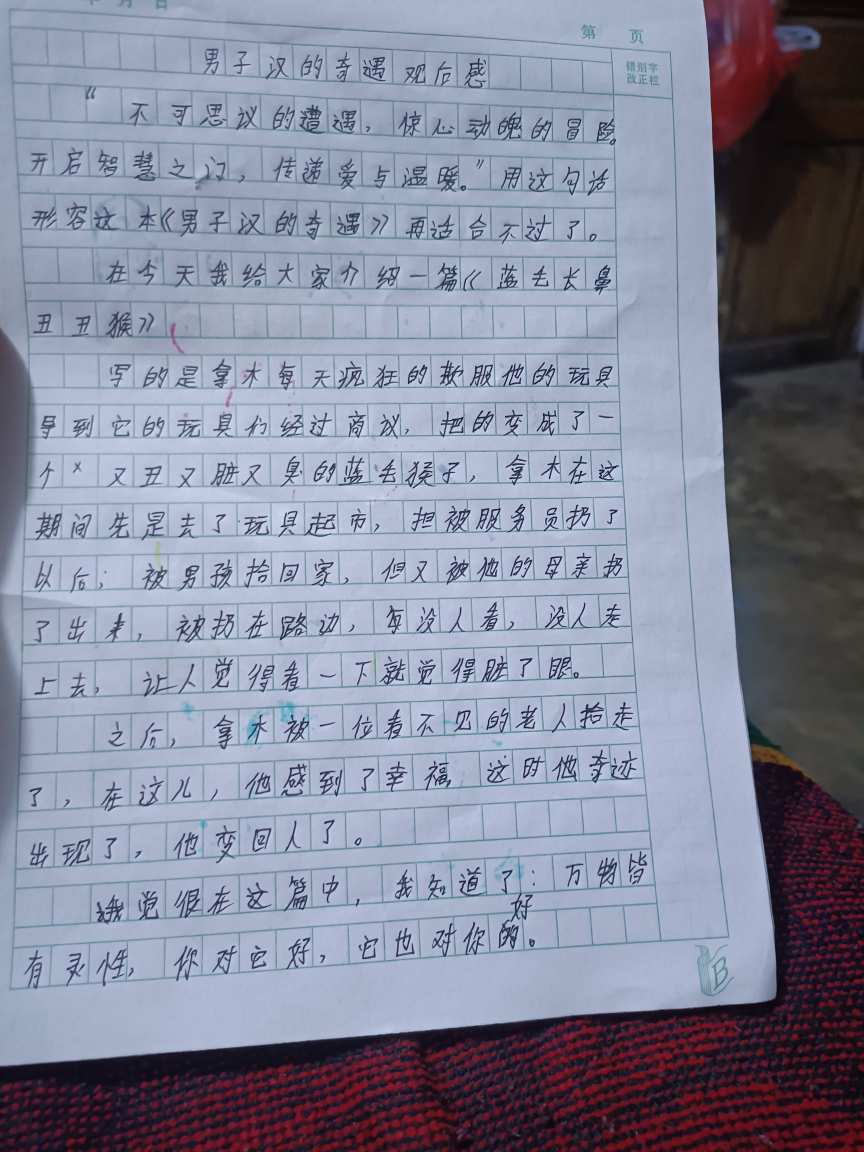 第 页
错别字
改正栏
男子汉的奇遇观后感
“不可思议的遭遇，惊心动魄的冒险。
开启智慧之门，传递爱与温暖。”用这句话
形容这本《男子汉的奇遇》再适合不过了。
在今天我给大家介绍一篇《蓝毛长鼻
丑丑猴》
写的是拿木每天疯狂的欺服他的玩具
导到它的玩具们经过商议，把的变成了一
个又丑又脏又臭的蓝毛猴子，拿木在这
期间先是去了玩具起市，担被服务员扔了
以后；被男孩拾回家，但又被他的母亲扔
了出来，被扔在路边，每没人看，没人走
上去，让人觉得看一下就觉得脏了眼。
之后，拿木被一位看不见的老人拾走
了，在这儿，他感到了幸福，这时他奇迹
出现了，他变回人了。
我觉很在这篇中，我知道了：万物皆
有灵性，你对它好，它也对你好的。
B